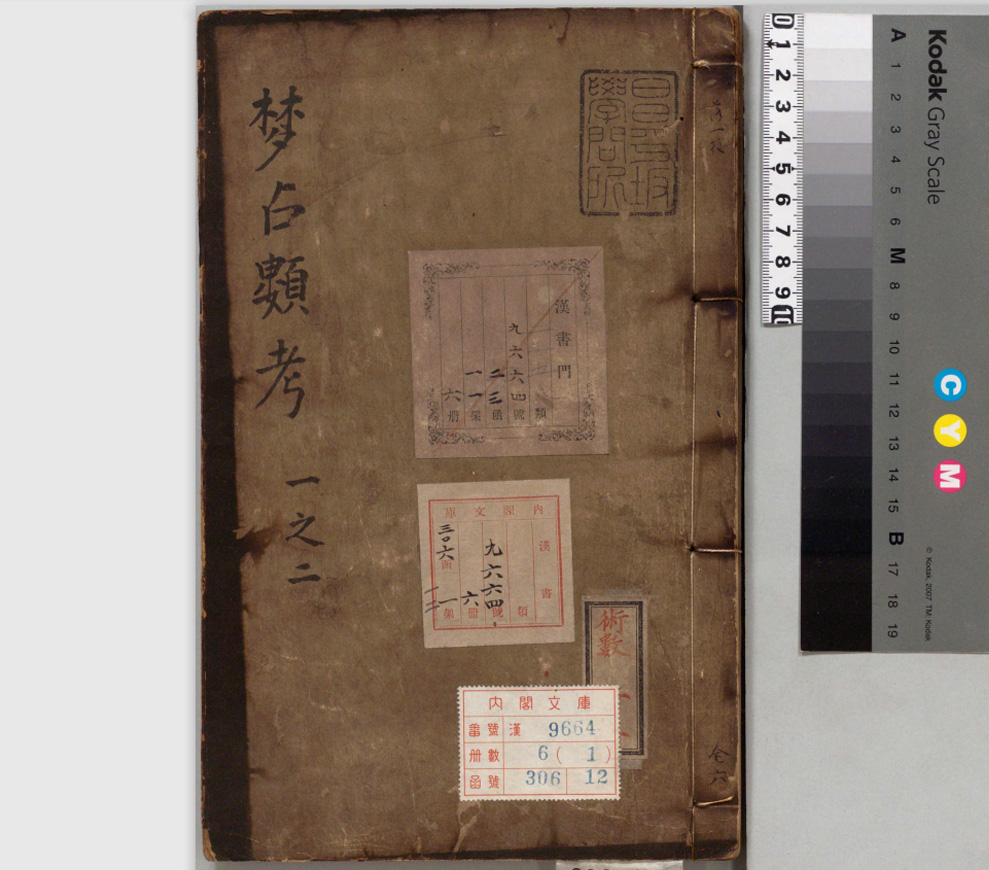 梦占類考
一之二
昌平坂
學問所
漢書門
類
九六六四號
二三函
一一架
六册
内閣文庫
漢書
類
九六六四號
六冊
三〇六函
一二架
術數
内閣文庫
番號 漢 9664
册數 6 ( 1 )
函號 306 12
全六
0 1 2 3 4 5 6 7 8 9 10
Kodak Gray Scale
A 1 2 3 4 5 6 M 8 9 10 11 12 13 14 15 B 17 18 19
C Y M
© Kodak, 2007 TM: Kodak